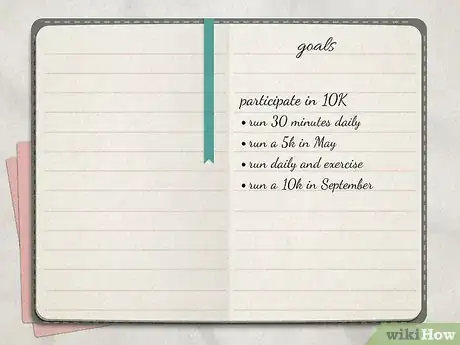 goals
participate in 10K
• run 30 minutes daily
• run a 5k in May
• run daily and exercise
• run a 10k in September
wikiHow